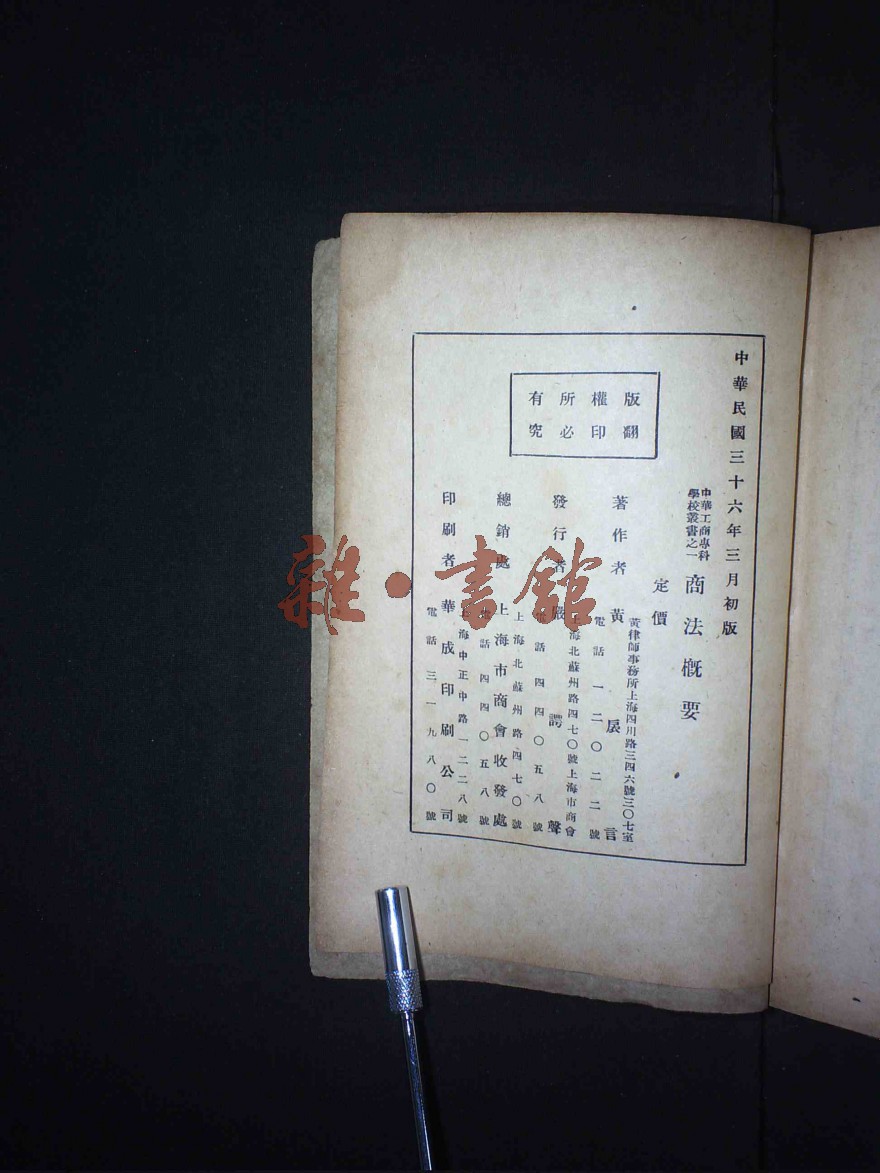 中華民國三十六年三月初版
中華工商專科
學校叢書之一
商法概要
定價
版權所有
翻印必究
著作者 黃扆言
黃律師事務所上海四川路三四六號三〇七室
電話一二〇二二號
發行者 嚴諤聲
上海北蘇州路四七〇號上海市商會
電話四四〇五八號
總銷處 上海市商會收發處
上海北蘇州路四七〇號
電話四四〇五八號
印刷者 華成印刷公司
上海中正中路一二二八號
電話三一九八〇號
雜·書館